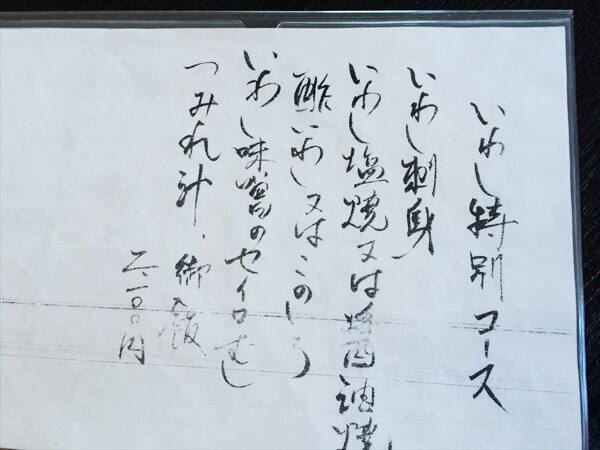 いわし特別コース
いわし刺身
いわし塩焼又は醤油焼
酢いわし又はこのしろ
いわし味噌のセイロむし
つみれ汁、御飯
二、一〇〇円